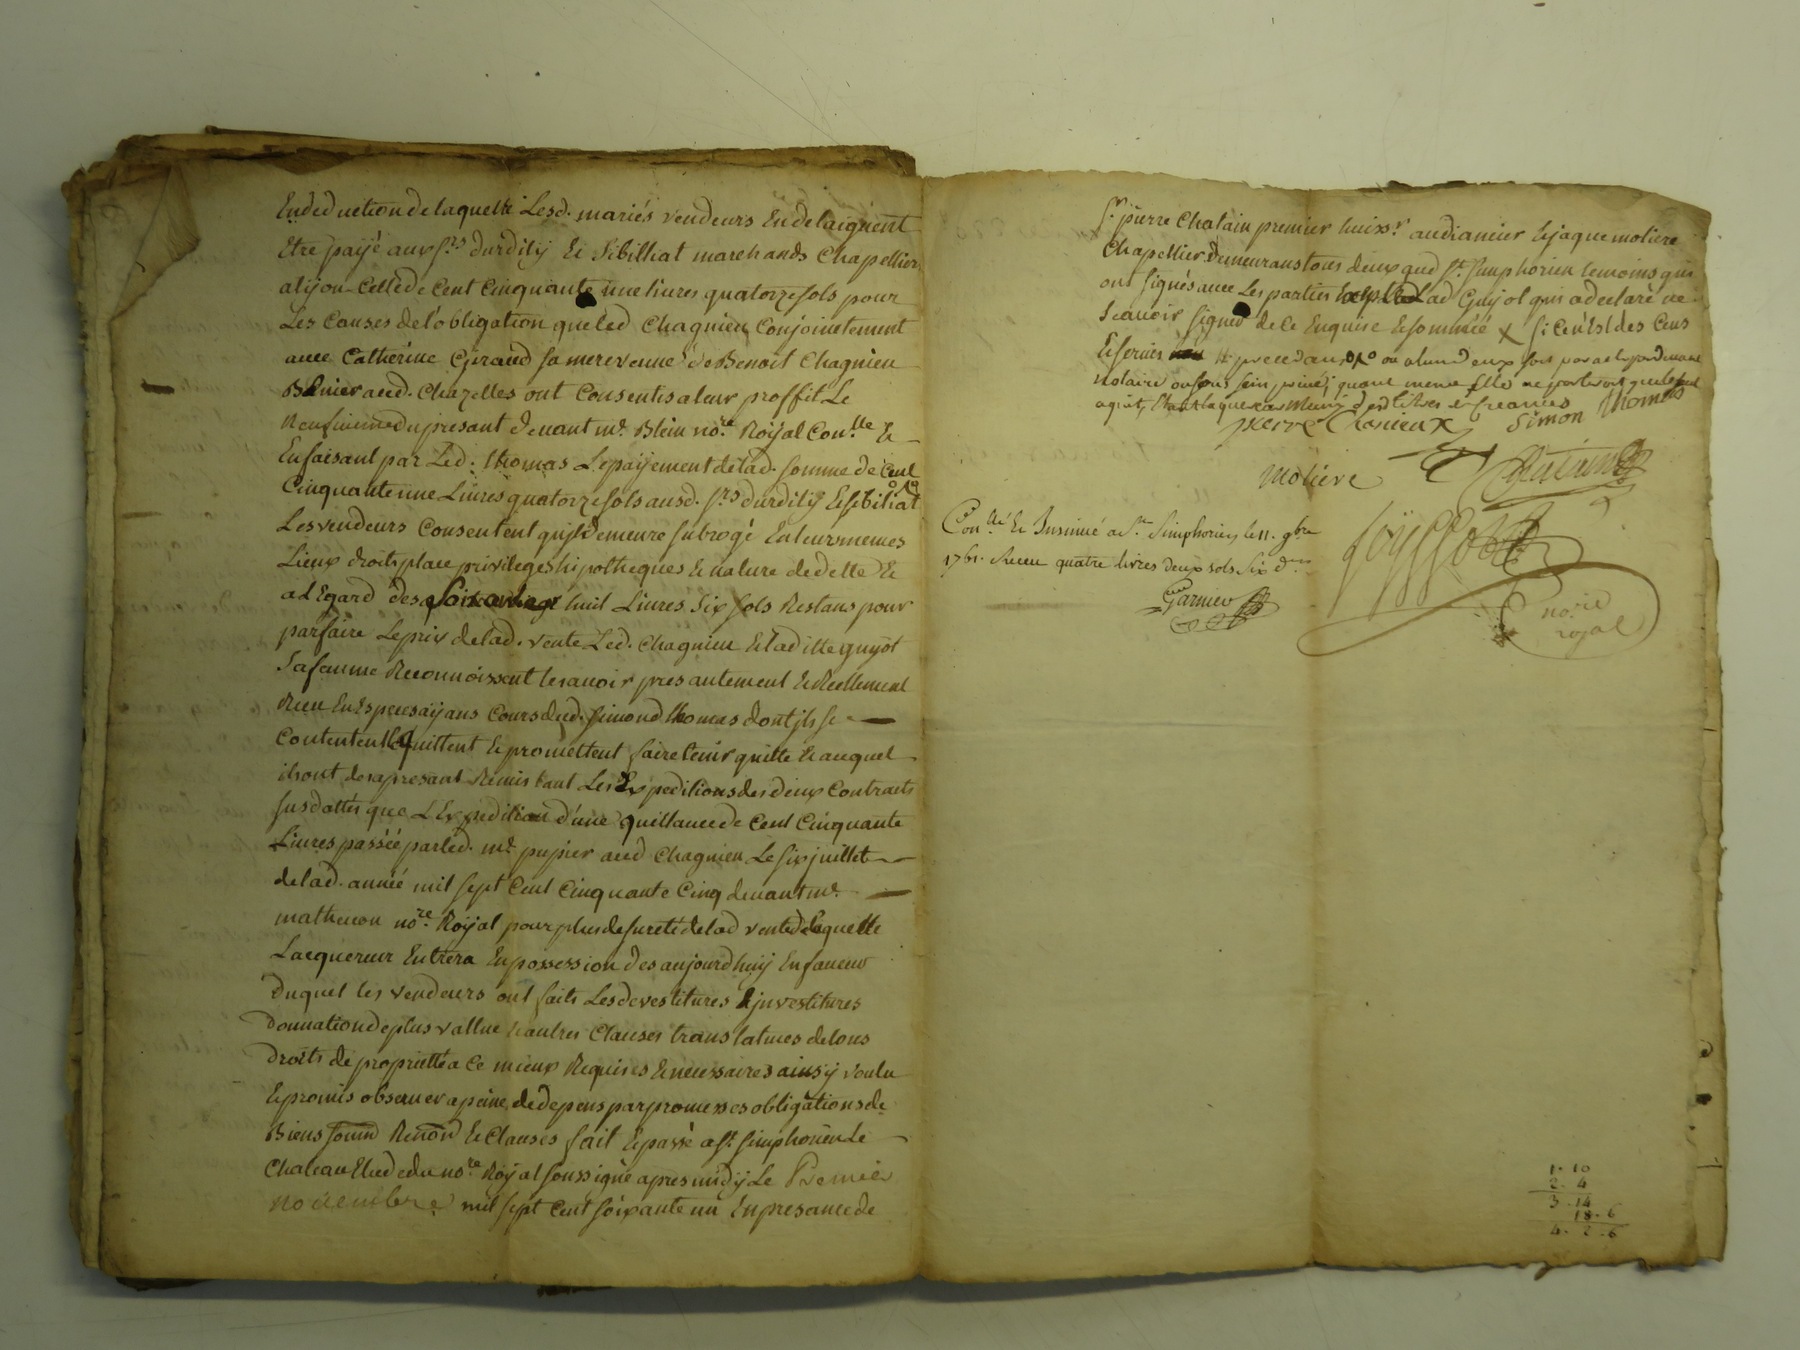 En deduction de laquelle Lesd. mariés vendeurs En delaignent
Etre payé aux srs durdilly Et Sibilliat marchands Chapelliers
a lyon Celle de Cent Cinquante une livres quatorze sols pour
Les Causes de l'obligation que led Chagnieu Conjoinctement
avec Catherine Giraud sa mere veuve de Benoit Chagnieu
aud. Chazelles ont Consentis a leur proffit Le
du presant devant me. Blein nore. Royal Conlle Et
En faisant par Led. thomas Le payement de lad. somme de Cent
Cinquante une Livres quatorze sols ausd. srs durdilly Et sibiliat
Les vendeurs Consentent qu'il demeure subrogé En leurs memes
Lieux droits place privileges hipotheques Et nature de dette Et
a L'Egard des soixante huit Livres Six sols Restans pour
parfaire Le prix de lad. vente Led. Chagnieu Et laditte guyot
Sa femme Reconnoissent les avoir presantement Et Reellement
Receu En Especes ayans Cours dud. simond thomas dont ils se
Contentent Quittent Et promettent faire tenir quitte Et auquel
ils ont des a presant Remis tant Les Expeditions des deux Contracts
susdattés que L'Expedition d'une quittance de Cent Cinquante
Livres passée par led. me. pupier aud Chagnieu Le six juillet
de lad. année mil sept Cent Cinquante Cinq devant me.
mathevon nore. Royal pour plus de sureté de lad vente de laquelle
L'acquereur Entrera En possession des aujourd'huy En faveur
Duquel les vendeurs ont faits Les devestitures Et investitures
Donnation de plus vallue Et autres Clauses translatives de tous
Droits de proprietté a Ce mieux Requises Et necessaires ainsy voulu
Et promis observer a peine de depens par promesses obligations de
Biens soumn Renon Et Clauses fait Et passé a st. simphorien Le
Chateau Etude du nore Royal soussigné apres midy Le Premier
novembre mil sept Cent soixante un En presance de
sr. pierre Chatain premier huissr. audiancier Et jaque moliere
Chapellier Demeurans tous deux aud St. simphorien temoins qui
ont signés avec Les parties Lad Guyot qui a declaré ne
Scavoir signer de Ce Enquise Et sommée x si Ce n'Est des Cens
Et servis precedans ou a l'un d'eux soit par acte pardevant
notaire ou sous sein privé, quant meme Elle ne porteroit que
titres et Creances
pierre Chanieux Simon thomas
Moliere Chatain
Conllé Et Insinué a St Simphorien le 11. 9bre
1761. Receu quatre livres deux sols six drs
Garnier
nore
royal
1 . 10
2 . 4
3 . 14
18 . 6
4 . 2 . 6